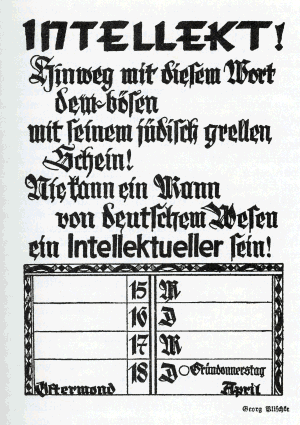 INTELLEKT!
Hinweg mit diesem Wort
dem bösen
mit seinem jüdisch grellen
Schein!
Nie kann ein Mann
von deutschem Wesen
ein Intellektueller sein!
15 M
16 D
17 M
18 D Gründonnerstag
Ostermond April
Georg Blischke